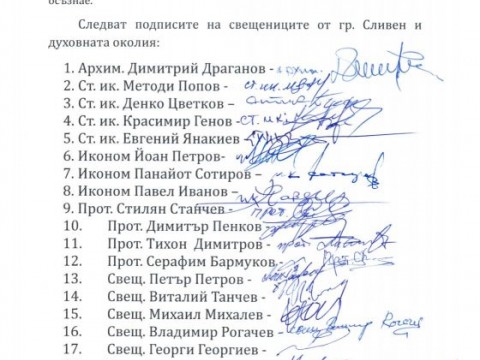 осъзнае.
Следват подписите на свещениците от гр. Сливен и
духовната околия:
1. Архим. Димитрий Драганов -
2. Ст. ик. Методи Попов -
3. Ст. ик. Денко Цветков –
4. Ст. ик. Красимир Генов -
5. Ст. ик. Евгений Янакиев -
6. Иконом Йоан Петров-
7. Иконом Панайот Сотиров -
8. Иконом Павел Иванов –
9. Прот. Стилян Станчев-
10. Прот. Димитър Пенков
11. Прот. Тихон Димитров -
12. Прот. Серафим Бармуков
13. Свещ. Петър Петров -
14. Свещ. Виталий Танчев -
15. Свещ. Михаил Михалев -
16. Свещ. Владимир Рогачев -
17. Свещ. Георги Георгиев -